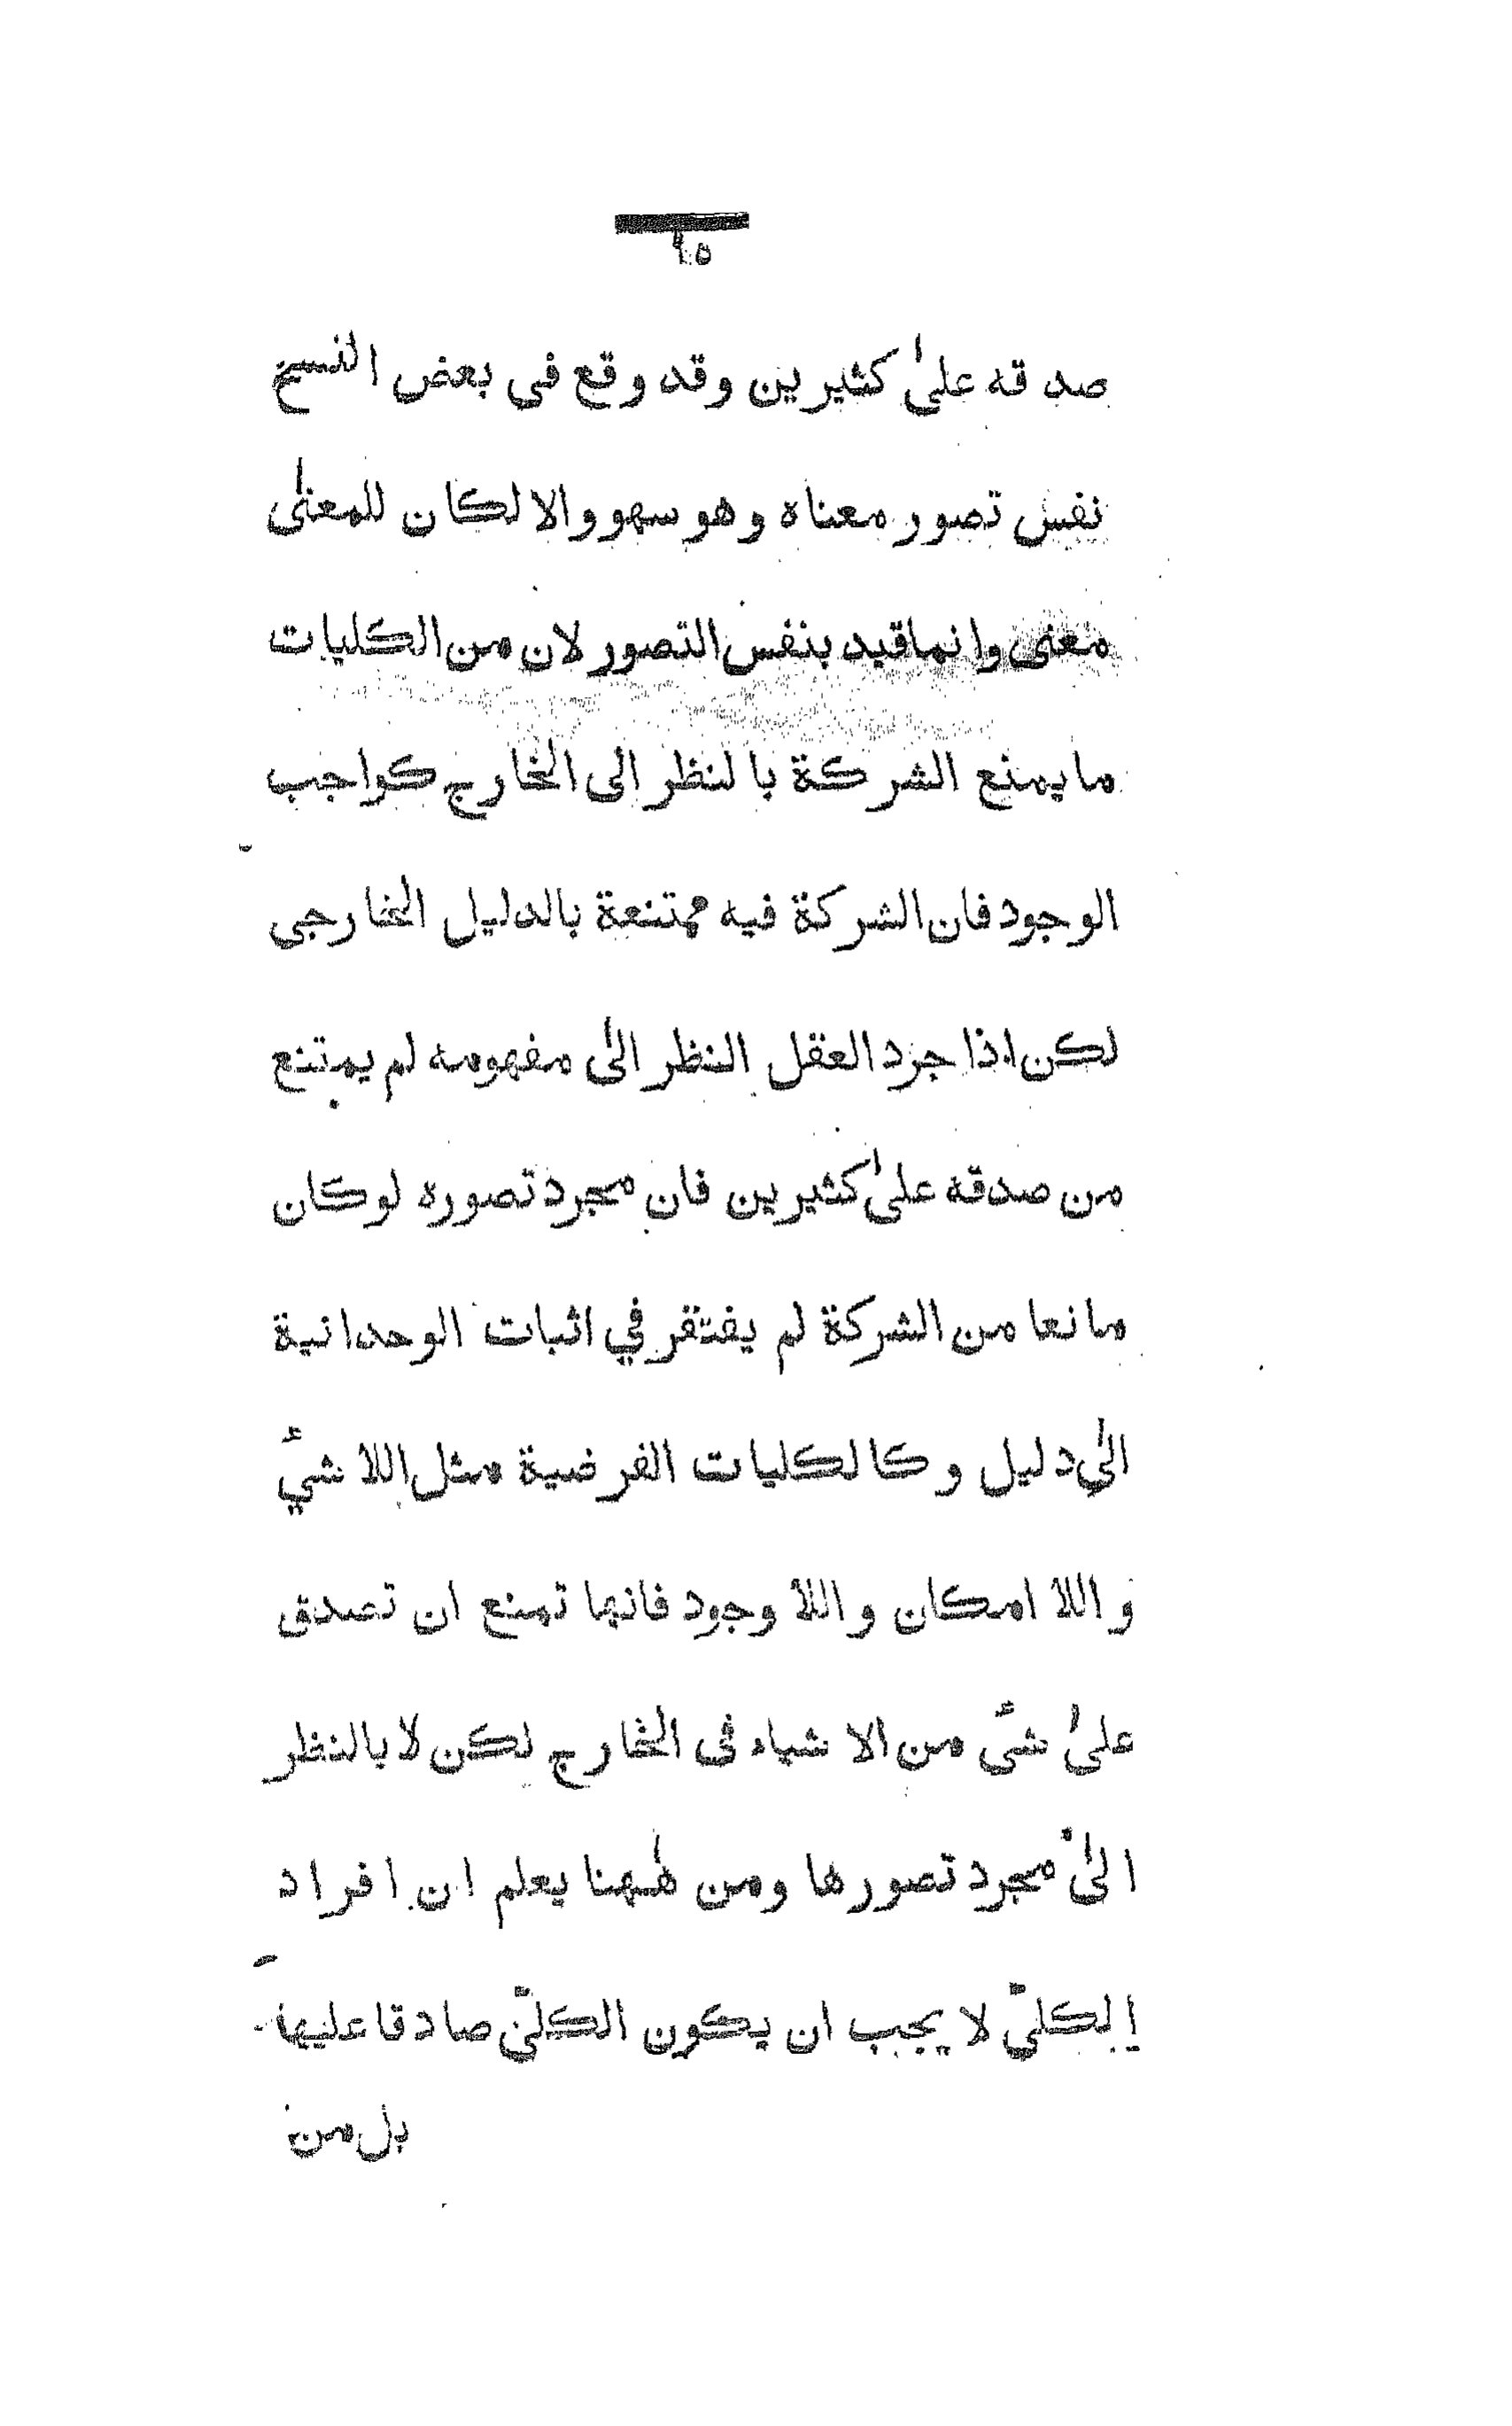 ٦٥
صدقه علىٰ كثيرين وقد وقع فى بعض النسخ
نفس تصور معناه وهو سهو والا لكان للمعنىٰ
معنى وانما قيد بنفس التصور لان من الكليات
ما يمنع الشركة بالنظر الى الخارج كواجب
الوجود فان الشركة فيه ممتنعة بالدليل الخارجى
لكن اذا جرد العقل النظر الىٰ مفهومه لم يمتنع
من صدقه علىٰ كثيرين فان مجرد تصوره لو كان
مانعا من الشركة لم يفتقر في اثبات الوحدانية
الىٰ دليل وكالكليات الفرضية مثل اللا شئ
واللا امكان واللا وجود فانها تمنع ان تصدق
علىٰ شىٔ من الاشياء فى الخارج لكن لا بالنظر
الىٰ مجرد تصورها ومن هٰهنا يعلم ان افراد
الكلىّ لا يجب ان يكون الكلىّ صادقا عليها
بل من